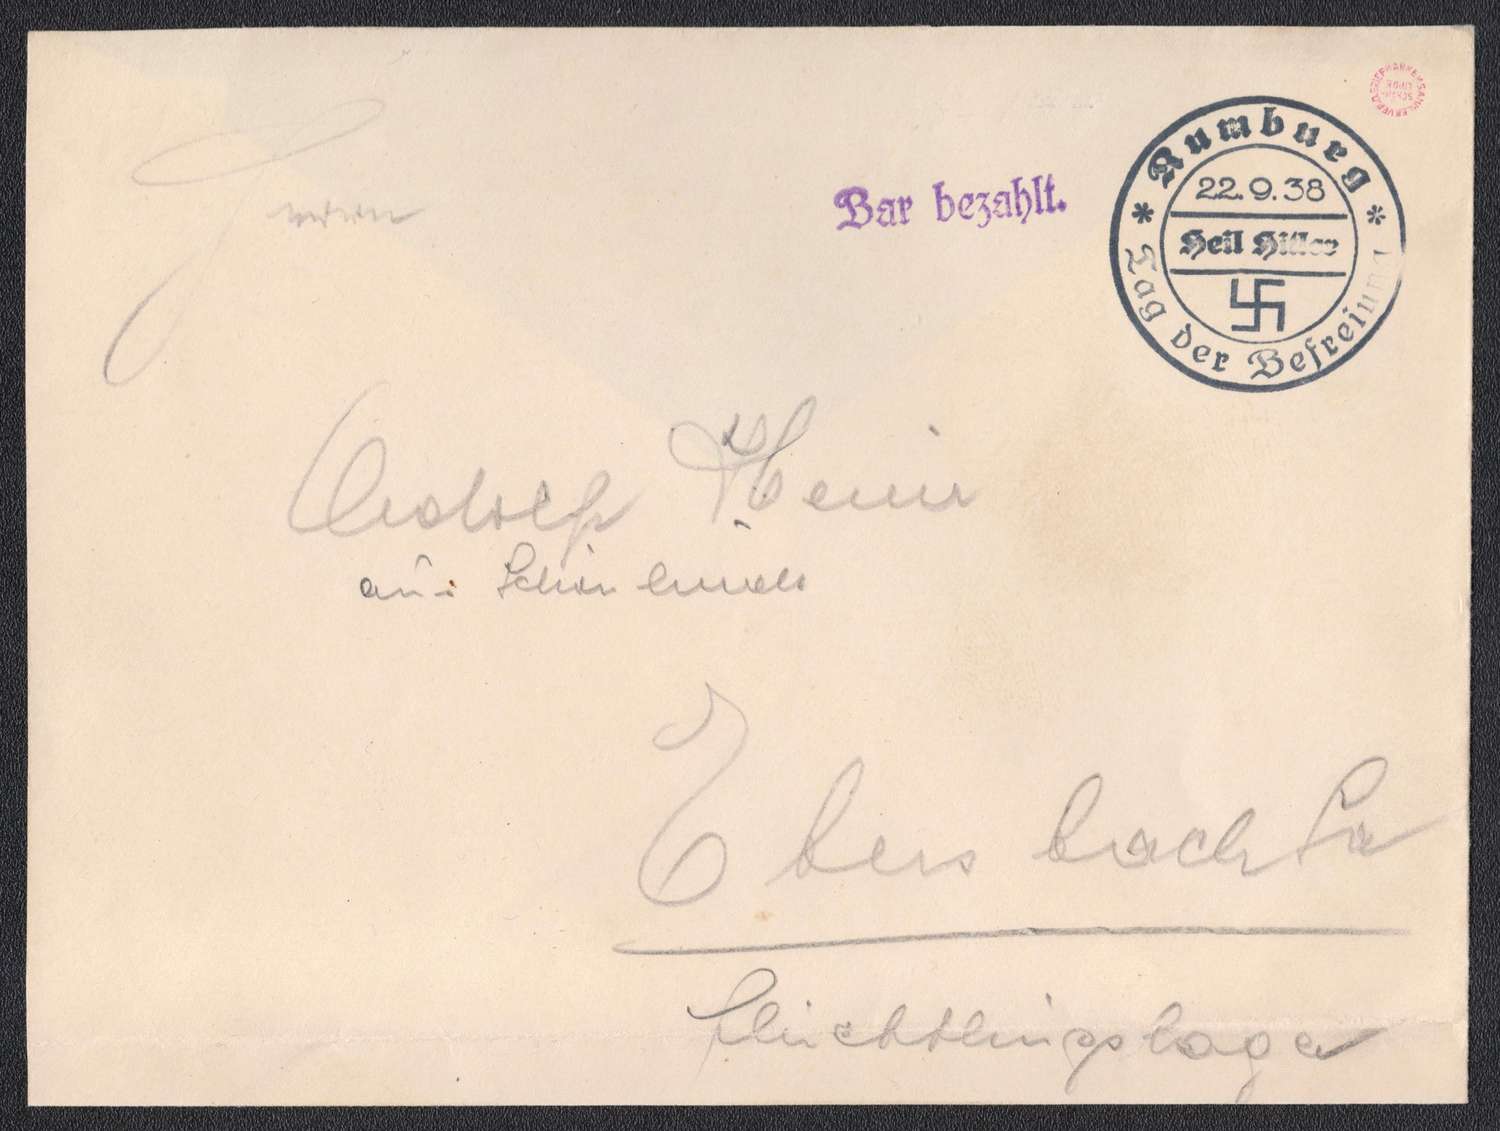 Herrn
Bar bezahlt.
Rumburg
22.9.38
Heil Hitler
Tag der Befreiung
Adolf
aus Schönlinde
Ebersbach Sa
Flüchtlingslager